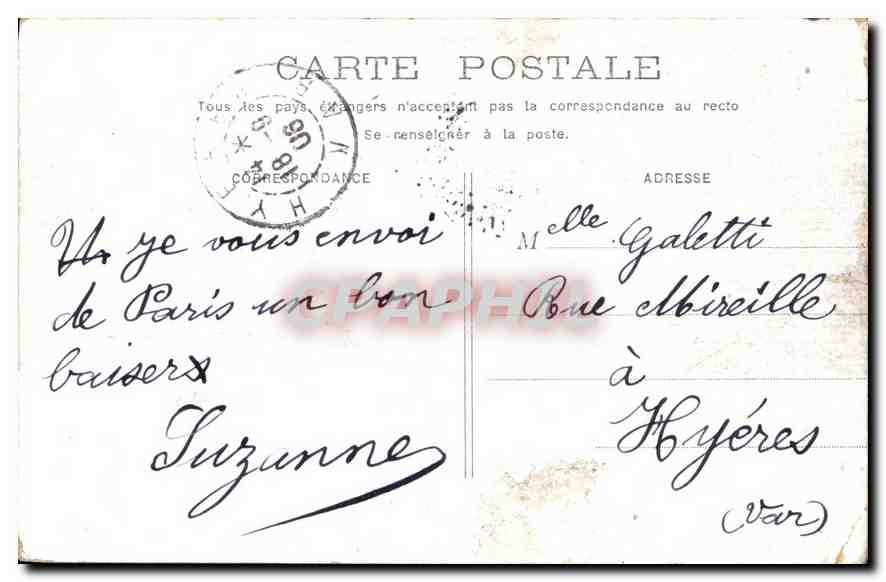 CARTE POSTALE
Tous les pays étrangers n'acceptent pas la correspondance au recto
Se renseigner à la poste.
CORRESPONDANCE
ADRESSE
je vous envoi
de Paris un bon
baisers
Suzanne
Melle Galetti
Rue Mireille
à
Hyéres
(Var)
CPAPHIL
18
4
06